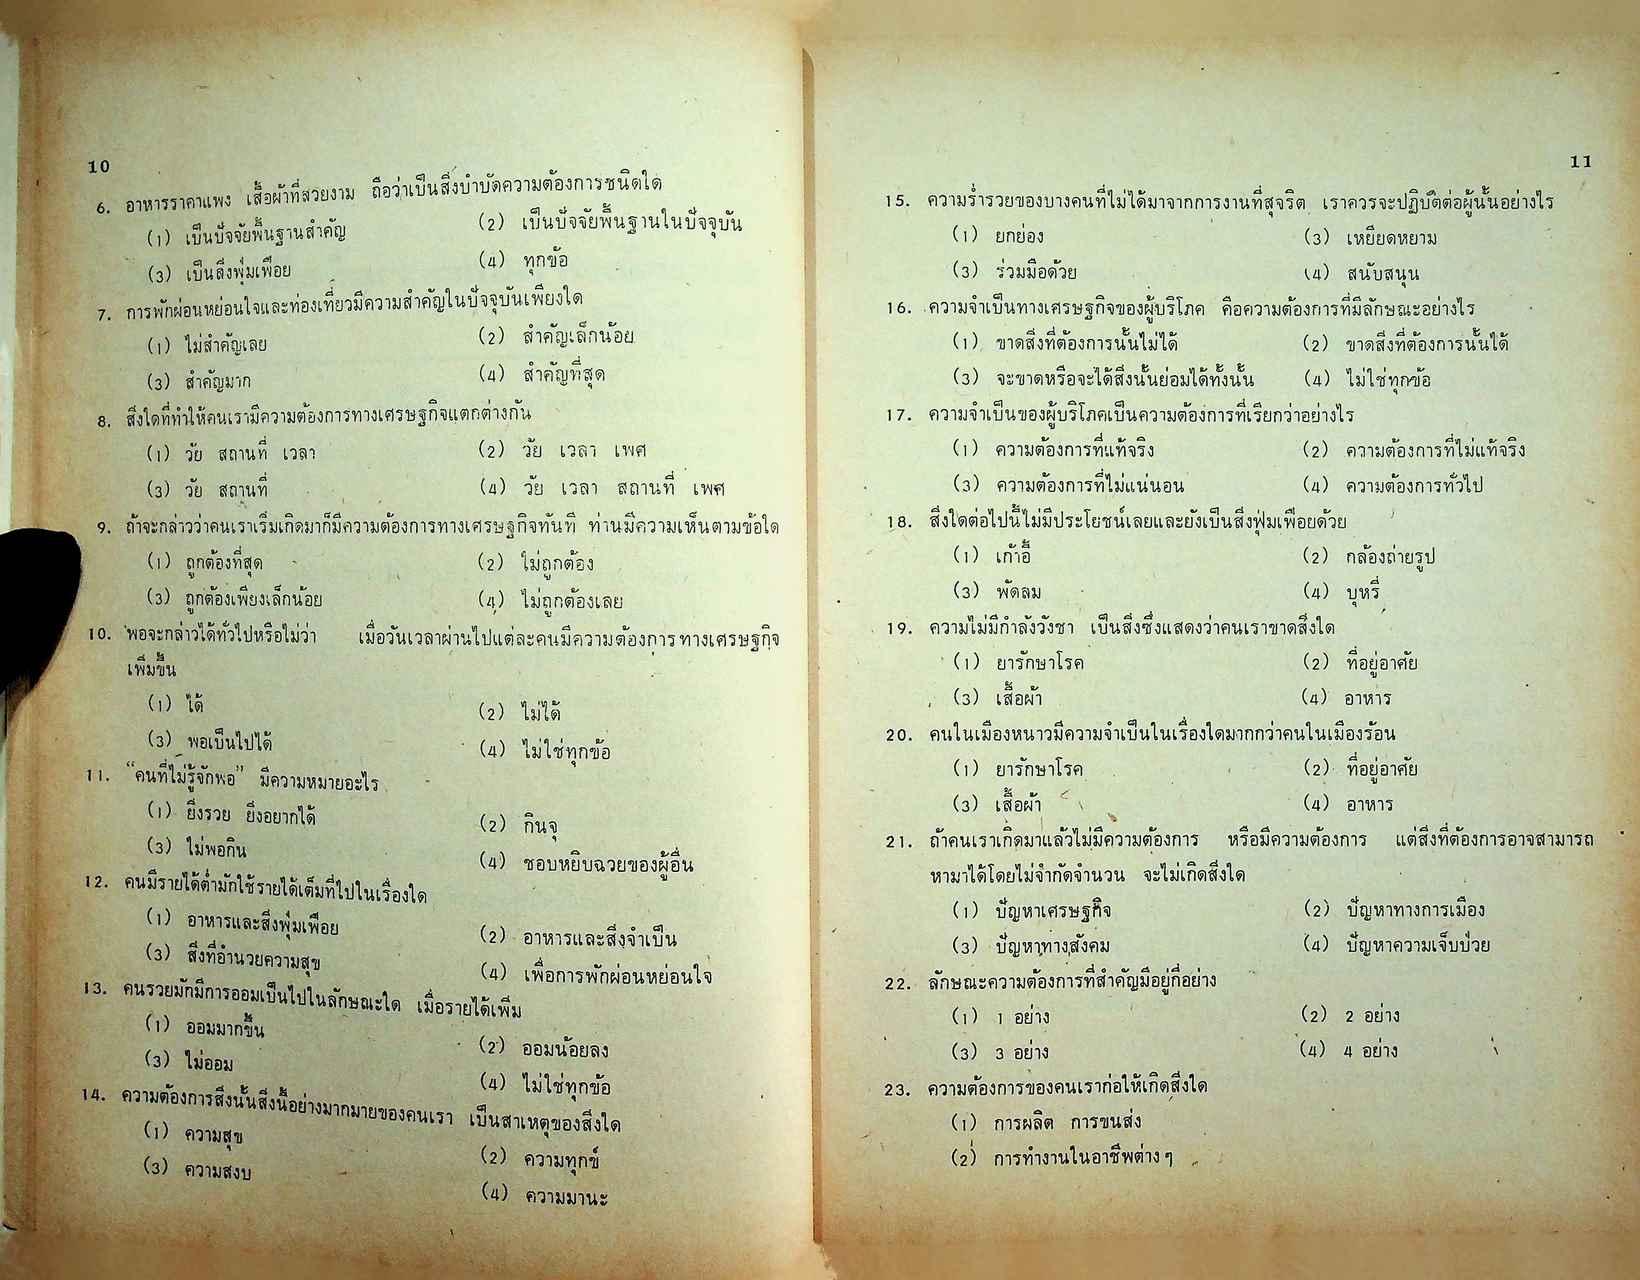 10
6. อาหารราคาแพง เสื้อผ้าที่สวยงาม ถือว่าเป็นสิ่งบำบัดความต้องการชนิดใด
(1) เป็นปัจจัยพื้นฐานสำคัญ (2) เป็นปัจจัยพื้นฐานในปัจจุบัน
(3) เป็นสิ่งฟุ่มเฟือย (4) ทุกข้อ
7. การพักผ่อนหย่อนใจและท่องเที่ยวมีความสำคัญในปัจจุบันเพียงใด
(1) ไม่สำคัญเลย (2) สำคัญเล็กน้อย
(3) สำคัญมาก (4) สำคัญที่สุด
8. สิ่งใดที่ทำให้คนเรามีความต้องการทางเศรษฐกิจแตกต่างกัน
(1) วัย สถานที่ เวลา (2) วัย เวลา เพศ
(3) วัย สถานที่ (4) วัย เวลา สถานที่ เพศ
9. ถ้าจะกล่าวว่าคนเราเริ่มเกิดมาก็มีความต้องการทางเศรษฐกิจทันที ท่านมีความเห็นตามข้อใด
(1) ถูกต้องที่สุด (2) ไม่ถูกต้อง
(3) ถูกต้องเพียงเล็กน้อย (4) ไม่ถูกต้องเลย
10. พอจะกล่าวได้ทั่วไปหรือไม่ว่า เมื่อวันเวลาผ่านไปแต่ละคนมีความต้องการทางเศรษฐกิจ
เพิ่มขึ้น
(1) ได้ (2) ไม่ได้
(3) พอเป็นไปได้ (4) ไม่ใช่ทุกข้อ
11. “คนที่ไม่รู้จักพอ” มีความหมายอะไร
(1) ยิ่งรวย ยิ่งอยากได้ (2) กินจุ
(3) ไม่พอกิน (4) ชอบหยิบฉวยของผู้อื่น
12. คนมีรายได้ต่ำมักใช้รายได้เต็มที่ไปในเรื่องใด
(1) อาหารและสิ่งฟุ่มเฟือย (2) อาหารและสิ่งจำเป็น
(3) สิ่งที่อำนวยความสุข (4) เพื่อการพักผ่อนหย่อนใจ
13. คนรวยมักมีการออมเป็นไปในลักษณะใด เมื่อรายได้เพิ่ม
(1) ออมมากขึ้น (2) ออมน้อยลง
(3) ไม่ออม (4) ไม่ใช่ทุกข้อ
14. ความต้องการสิ่งนั้นสิ่งนี้อย่างมากมายของคนเรา เป็นสาเหตุของสิ่งใด
(1) ความสุข (2) ความทุกข์
(3) ความสงบ (4) ความมานะ
11
15. ความร่ำรวยของบางคนที่ไม่ได้มาจากการงานที่สุจริต เราควรจะปฏิบัติต่อผู้นั้นอย่างไร
(1) ยกย่อง (3) เหยียดหยาม
(3) ร่วมมือด้วย (4) สนับสนุน
16. ความจำเป็นทางเศรษฐกิจของผู้บริโภค คือความต้องการที่มีลักษณะอย่างไร
(1) ขาดสิ่งที่ต้องการนั้นไม่ได้ (2) ขาดสิ่งที่ต้องการนั้นได้
(3) จะขาดหรือจะได้สิ่งนั้นย่อมได้ทั้งนั้น (4) ไม่ใช่ทุกข้อ
17. ความจำเป็นของผู้บริโภคเป็นความต้องการที่เรียกว่าอย่างไร
(1) ความต้องการที่แท้จริง (2) ความต้องการที่ไม่แท้จริง
(3) ความต้องการที่ไม่แน่นอน (4) ความต้องการทั่วไป
18. สิ่งใดต่อไปนี้ไม่มีประโยชน์เลยและยังเป็นสิ่งฟุ่มเฟือยด้วย
(1) เก้าอี้ (2) กล้องถ่ายรูป
(3) พัดลม (4) บุหรี่
19. ความไม่มีกำลังวังชา เป็นสิ่งซึ่งแสดงว่าคนเราขาดสิ่งใด
(1) ยารักษาโรค (2) ที่อยู่อาศัย
(3) เสื้อผ้า (4) อาหาร
20. คนในเมืองหนาวมีความจำเป็นในเรื่องใดมากกว่าคนในเมืองร้อน
(1) ยารักษาโรค (2) ที่อยู่อาศัย
(3) เสื้อผ้า (4) อาหาร
21. ถ้าคนเราเกิดมาแล้วไม่มีความต้องการ หรือมีความต้องการ แต่สิ่งที่ต้องการอาจสามารถ
หามาได้โดยไม่จำกัดจำนวน จะไม่เกิดสิ่งใด
(1) ปัญหาเศรษฐกิจ (2) ปัญหาทางการเมือง
(3) ปัญหาทางสังคม (4) ปัญหาความเจ็บป่วย
22. ลักษณะความต้องการที่สำคัญมีอยู่กี่อย่าง
(1) 1 อย่าง (2) 2 อย่าง
(3) 3 อย่าง (4) 4 อย่าง
23. ความต้องการของคนเราก่อให้เกิดสิ่งใด
(1) การผลิต การขนส่ง
(2) การทำงานในอาชีพต่าง ๆ